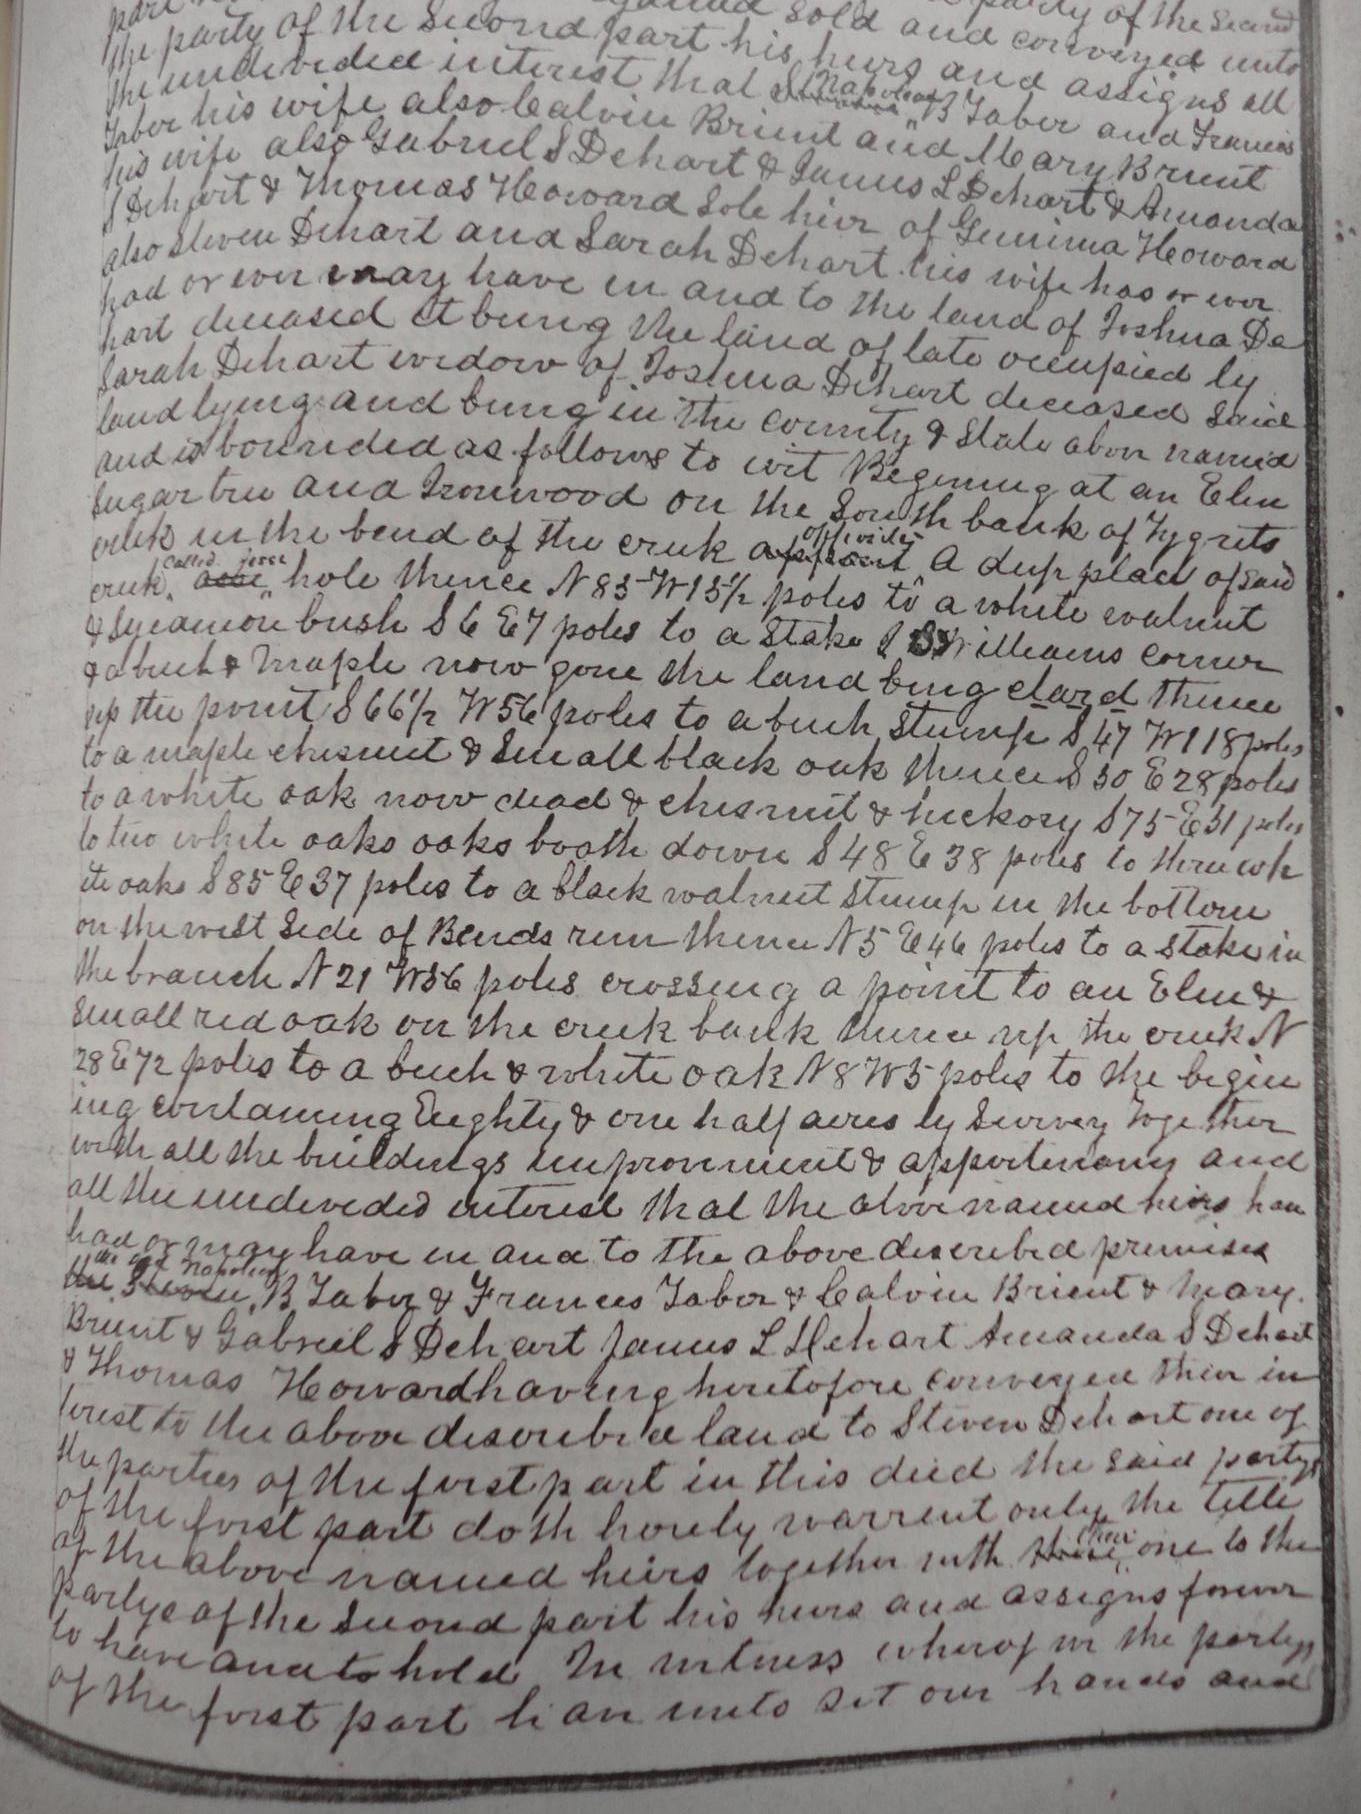 sold and party of the Second
the party of the Second part his heirs and conveyed unto
the undivided interest that Napoleon and assigns all
Taber his wife also Calvin Brient and B Taber and Francis
his wife also Gabriel S Dehart & James L Dehart & Mary Brient
S Dehart & Thomas Howard Sole heir of Gemima Howard & Amanda
also Steven Dehart and Sarah Dehart his wife has or ever
had or ever may have in and to the land of Joshua De
hart deceased it being the land of late occupied by
Sarah Dehart widow of Joshua Dehart deceased said
land lying and being in the county & State above named
and is bounded as follows to wit Begining at an Elm
Sugar tree and Ironwood on the South bank of Tygrets
creek in the bend of the creek opposite a deep place of said
creek called hole thence N 85 W 15½ poles to a white walnut
& Sycamore bush S 6 E 7 poles to a Stake Williams corner
& a buch & maple now gone the land being clard thence
up the point S 66½ W 56 poles to a buch stump S 47 W 118 poles
to a maple chesnut & Small black oak thence S 30 E 28 poles
to a white oak now dead & chesnut & hickory S 75 E 31 poles
to two white oaks oaks booth down S 48 E 38 poles to three wh
ite oaks S 85 E 37 poles to a black walnut Stump in the bottom
on the west Side of Bends run thence N 5 E 46 poles to a stake in
the branch N 21 W 56 poles crossing a point to an Elm &
Small red oak on the creek bank thence up the creek N
28 E 72 poles to a buch & white oak N 8 W 5 poles to the begin
ing containing Eighty & one half acres by Survey Together
with all the buildings improvment & appertinancy and
all the undevided interest that the above named heirs have
had or may have in and to the above described premises
Napoleon B Taber & Frances Taber & Calvin Brient & Mary
Brient & Gabriel S Dehart James L Dehart Amanda S Dehart
& Thomas Howard having heretofore conveyed their in
terest to the above described land to Steven Dehart one of
the parties of the first part in this deed the said partys
of the first part doth hereby warrent only the title
of the above named heirs together with one to the
partys of the Second part his heirs and assigns forever
to have and to hold In witness wherof we the partys
of the first part have unto set our hands and